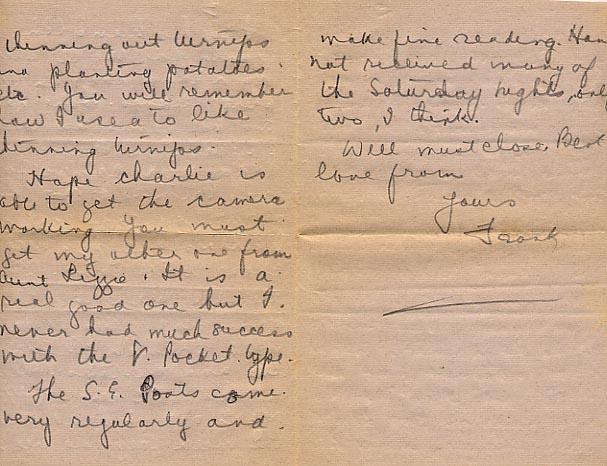 thinning out turnips
and planting potatoes.
etc. You will remember
how I used to like
thinning turnips.
Hope Charlie is
able to get the camera
working You must
get my other one from
Aunt Lizzie. It is a
real good one but I.
never had much success
with the V. Pocket. type.
The S. E. Posts come
very regularly and.
make fine reading. Have
not received many of
the Saturday nights, only
two, I think.
Will must close, Best
love from
Yours
Frank